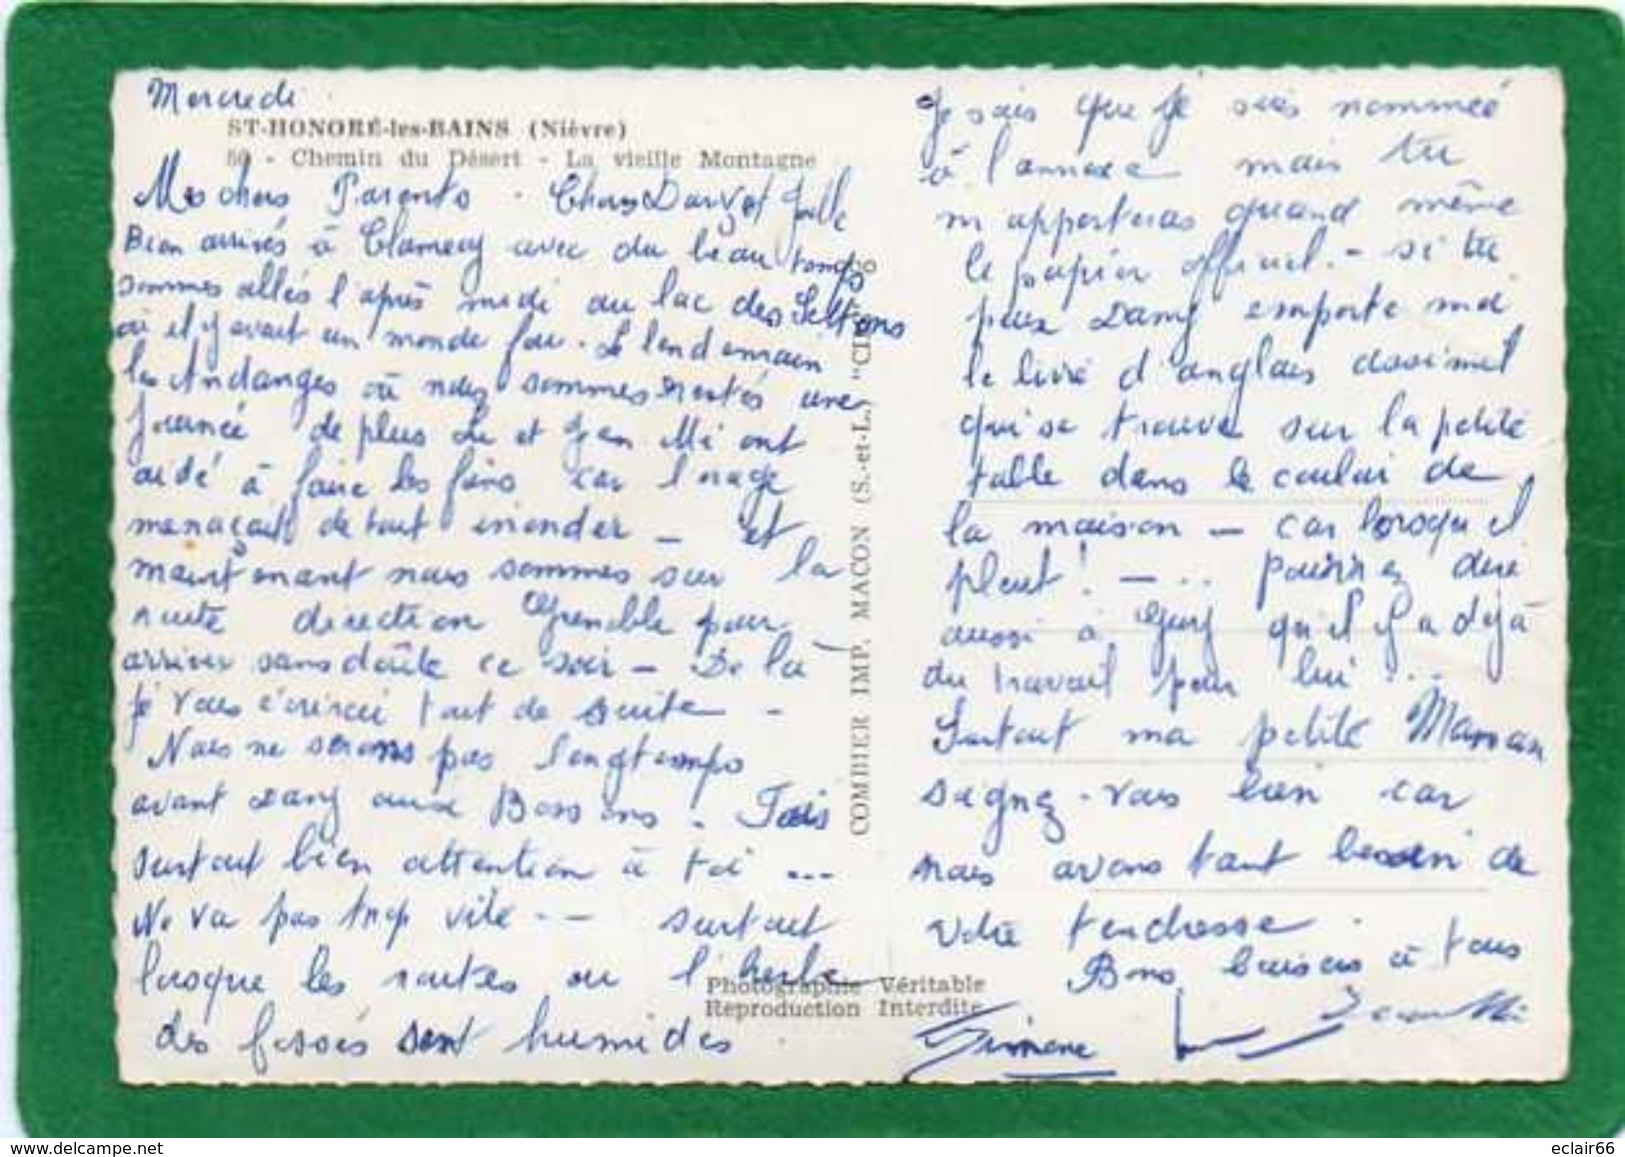 Mercredi
ST-HONORÉ-les-BAINS (Nièvre)
50 - Chemin du Désert - La vieille Montagne
Mes chers Parents. Chers Dany et
Bien arrivés à Clamecy avec du beau temps
sommes allés l'après midi au lac des Settons
où il y avait un monde fou. Le lendemain
les Andanges où nous sommes restés une
journée de plus Lu et Jean Mi ont
aidé à faire les foins car l'orage
menaçait de tout inonder - et
maintenant nous sommes sur la
route direction Grenoble pour
arriver sans doute ce soir - De là
je vous écrirai tout de suite -
Nous ne serons pas longtemps
avant Dany aux Bossons. Fais
surtout bien attention à toi ...
Ne va pas trop vite -- surtout
lorsque les routes ou l'herbe
des fossés sont humides
COMBIER IMP. MACON (S.-et-L.) "CIM"
Photographie Véritable
Reproduction Interdite
Je sais que je suis nommée
à l'annexe mais tu
m'apporteras quand même
le papier officiel. - si tu
peux Dany emporte moi
le livre d'anglais assimil
qui se trouve sur la petite
table dans le couloir de
la maison - car lorsqu'il
pleut! - .. pourrez dire
aussi à qu'il y a déjà
du travail pour lui ...
Surtout ma petite Maman
soignez-vous bien car
nous avons tant besoin de
votre tendresse.
Bons baisers à tous
Simone Jean Mi
delcampe.net
eclair66